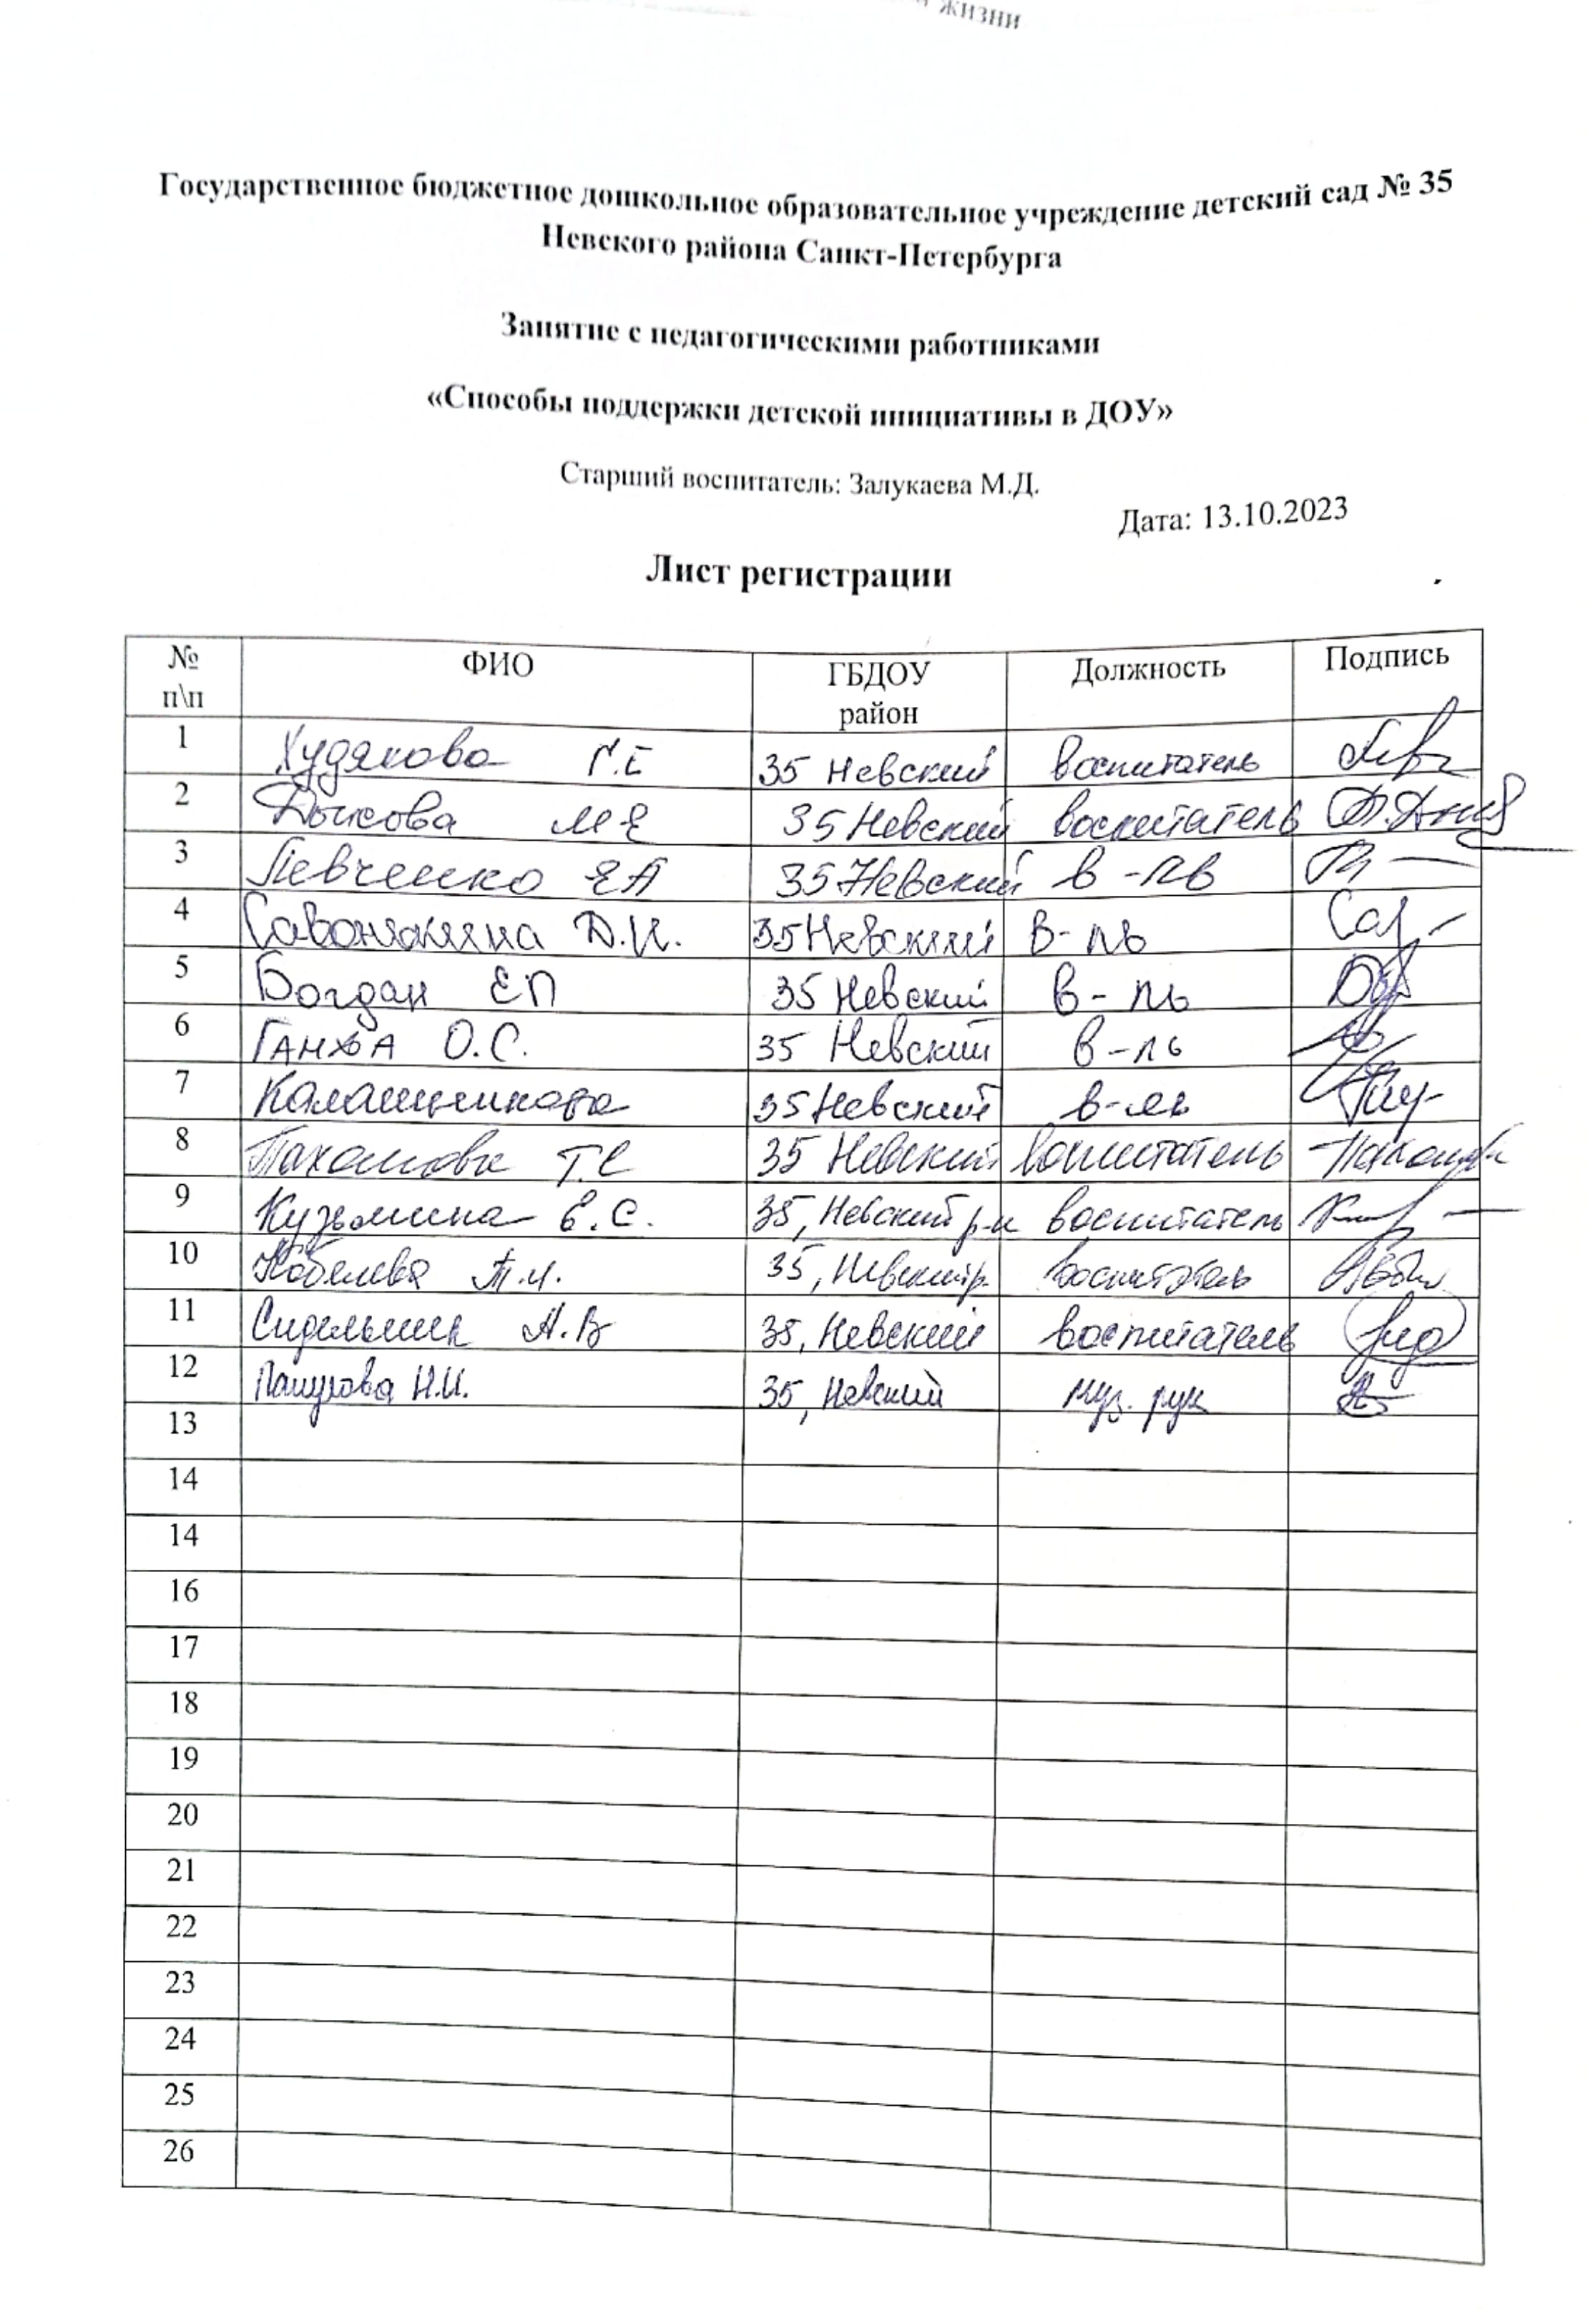 жизни
Государственное бюджетное дошкольное образовательное учреждение детский сад № 35
Невского района Санкт-Петербурга
Занятие с педагогическими работниками
«Способы поддержки детской инициативы в ДОУ»
Старший воспитатель: Залукаева М.Д.
Дата: 13.10.2023
Лист регистрации
№ п\п ФИО ГБДОУ район Должность Подпись
1 Худякова Г.Е 35 Невский воспитатель
2 М Е 35 Невский воспитатель
3 Левченко ЕА 35 Невский в-ль
4 Д.И. 35 Невский в-ль
5 Богдан ЕП 35 Невский в-ль
6 О.С. 35 Невский в-ль
7 Калашникова 35 Невский в-ль
8 Пахомова Т.С 35 Невский воспитатель
9 Кузьмина Е.С. 35, Невский р-н воспитатель
10 Кобелева 35, Невский р. воспитатель
11 Сидельник А.В 35, Невский воспитатель
12 Н.И. 35, Невский муз. рук
13
14
14
16
17
18
19
20
21
22
23
24
25
26